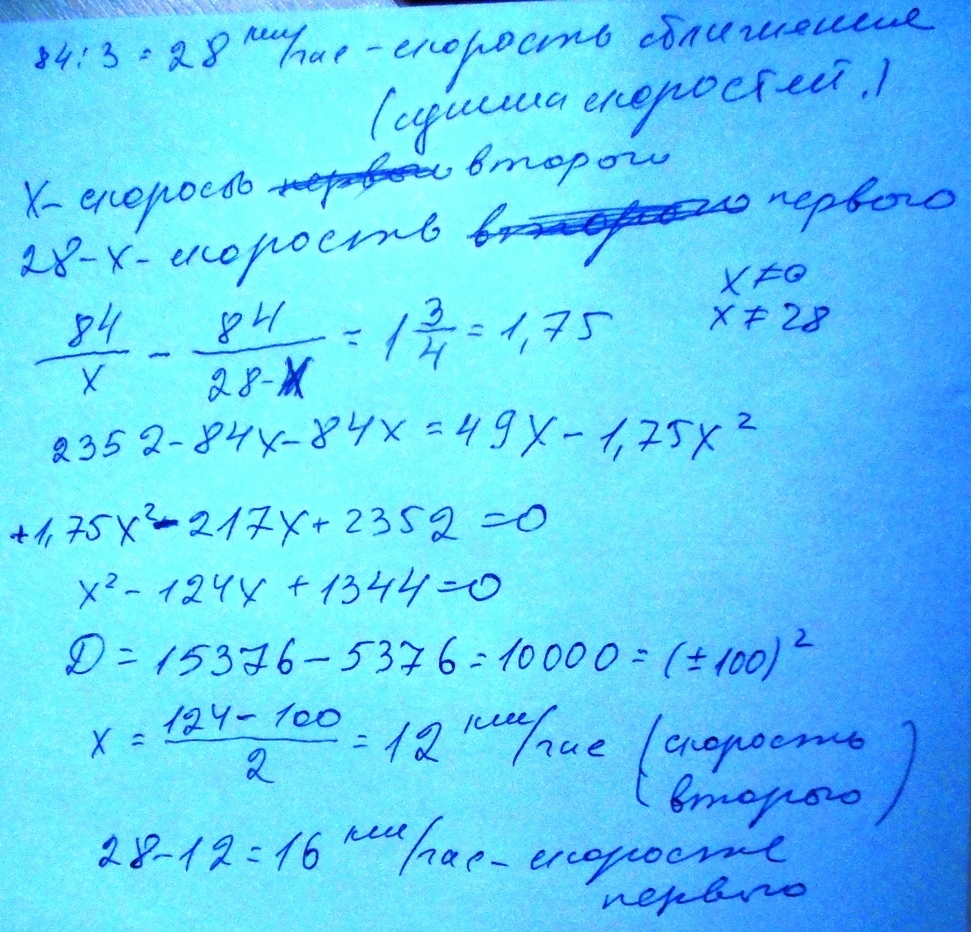 84:3=28 км/час - скорость сближения
(сумма скоростей.)
X - скорость первого второго
28-X - скорость второго первого
x≠0
x≠28
84/x - 84/28-x = 1 3/4 = 1,75
2352-84x-84x=49x-1,75x²
+1,75x²-217x+2352=0
x²-124x+1344=0
D=15376-5376=10000=(±100)²
x = 124-100/2 = 12 км/час (скорость
второго)
28-12=16 км/час - скорость
первого